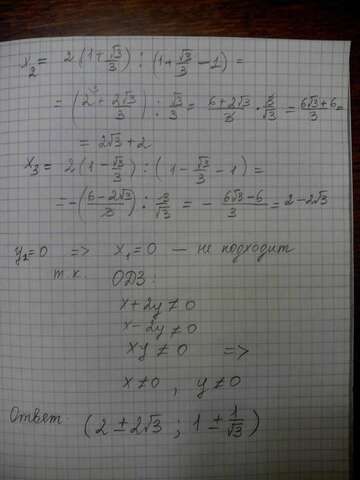 x₂ = 2(1+√3/3) : (1+√3/3 − 1) =
= (2³ + 2√3/3) : √3/3 = (6+2√3)/3 · 3/√3 = (6√3+6)/3 =
= 2√3+2
x₃ = 2(1−√3/3) : (1−√3/3 − 1) =
= −((6−2√3)/3) : 3/√3 = − (6√3−6)/3 = 2−2√3
y₁=0 => x₁=0 — не подходит
т.к. ОДЗ:
x+2y≠0
x−2y≠0
xy≠0 =>
x≠0 , y≠0
Ответ: (2±2√3 ; 1±1/√3)